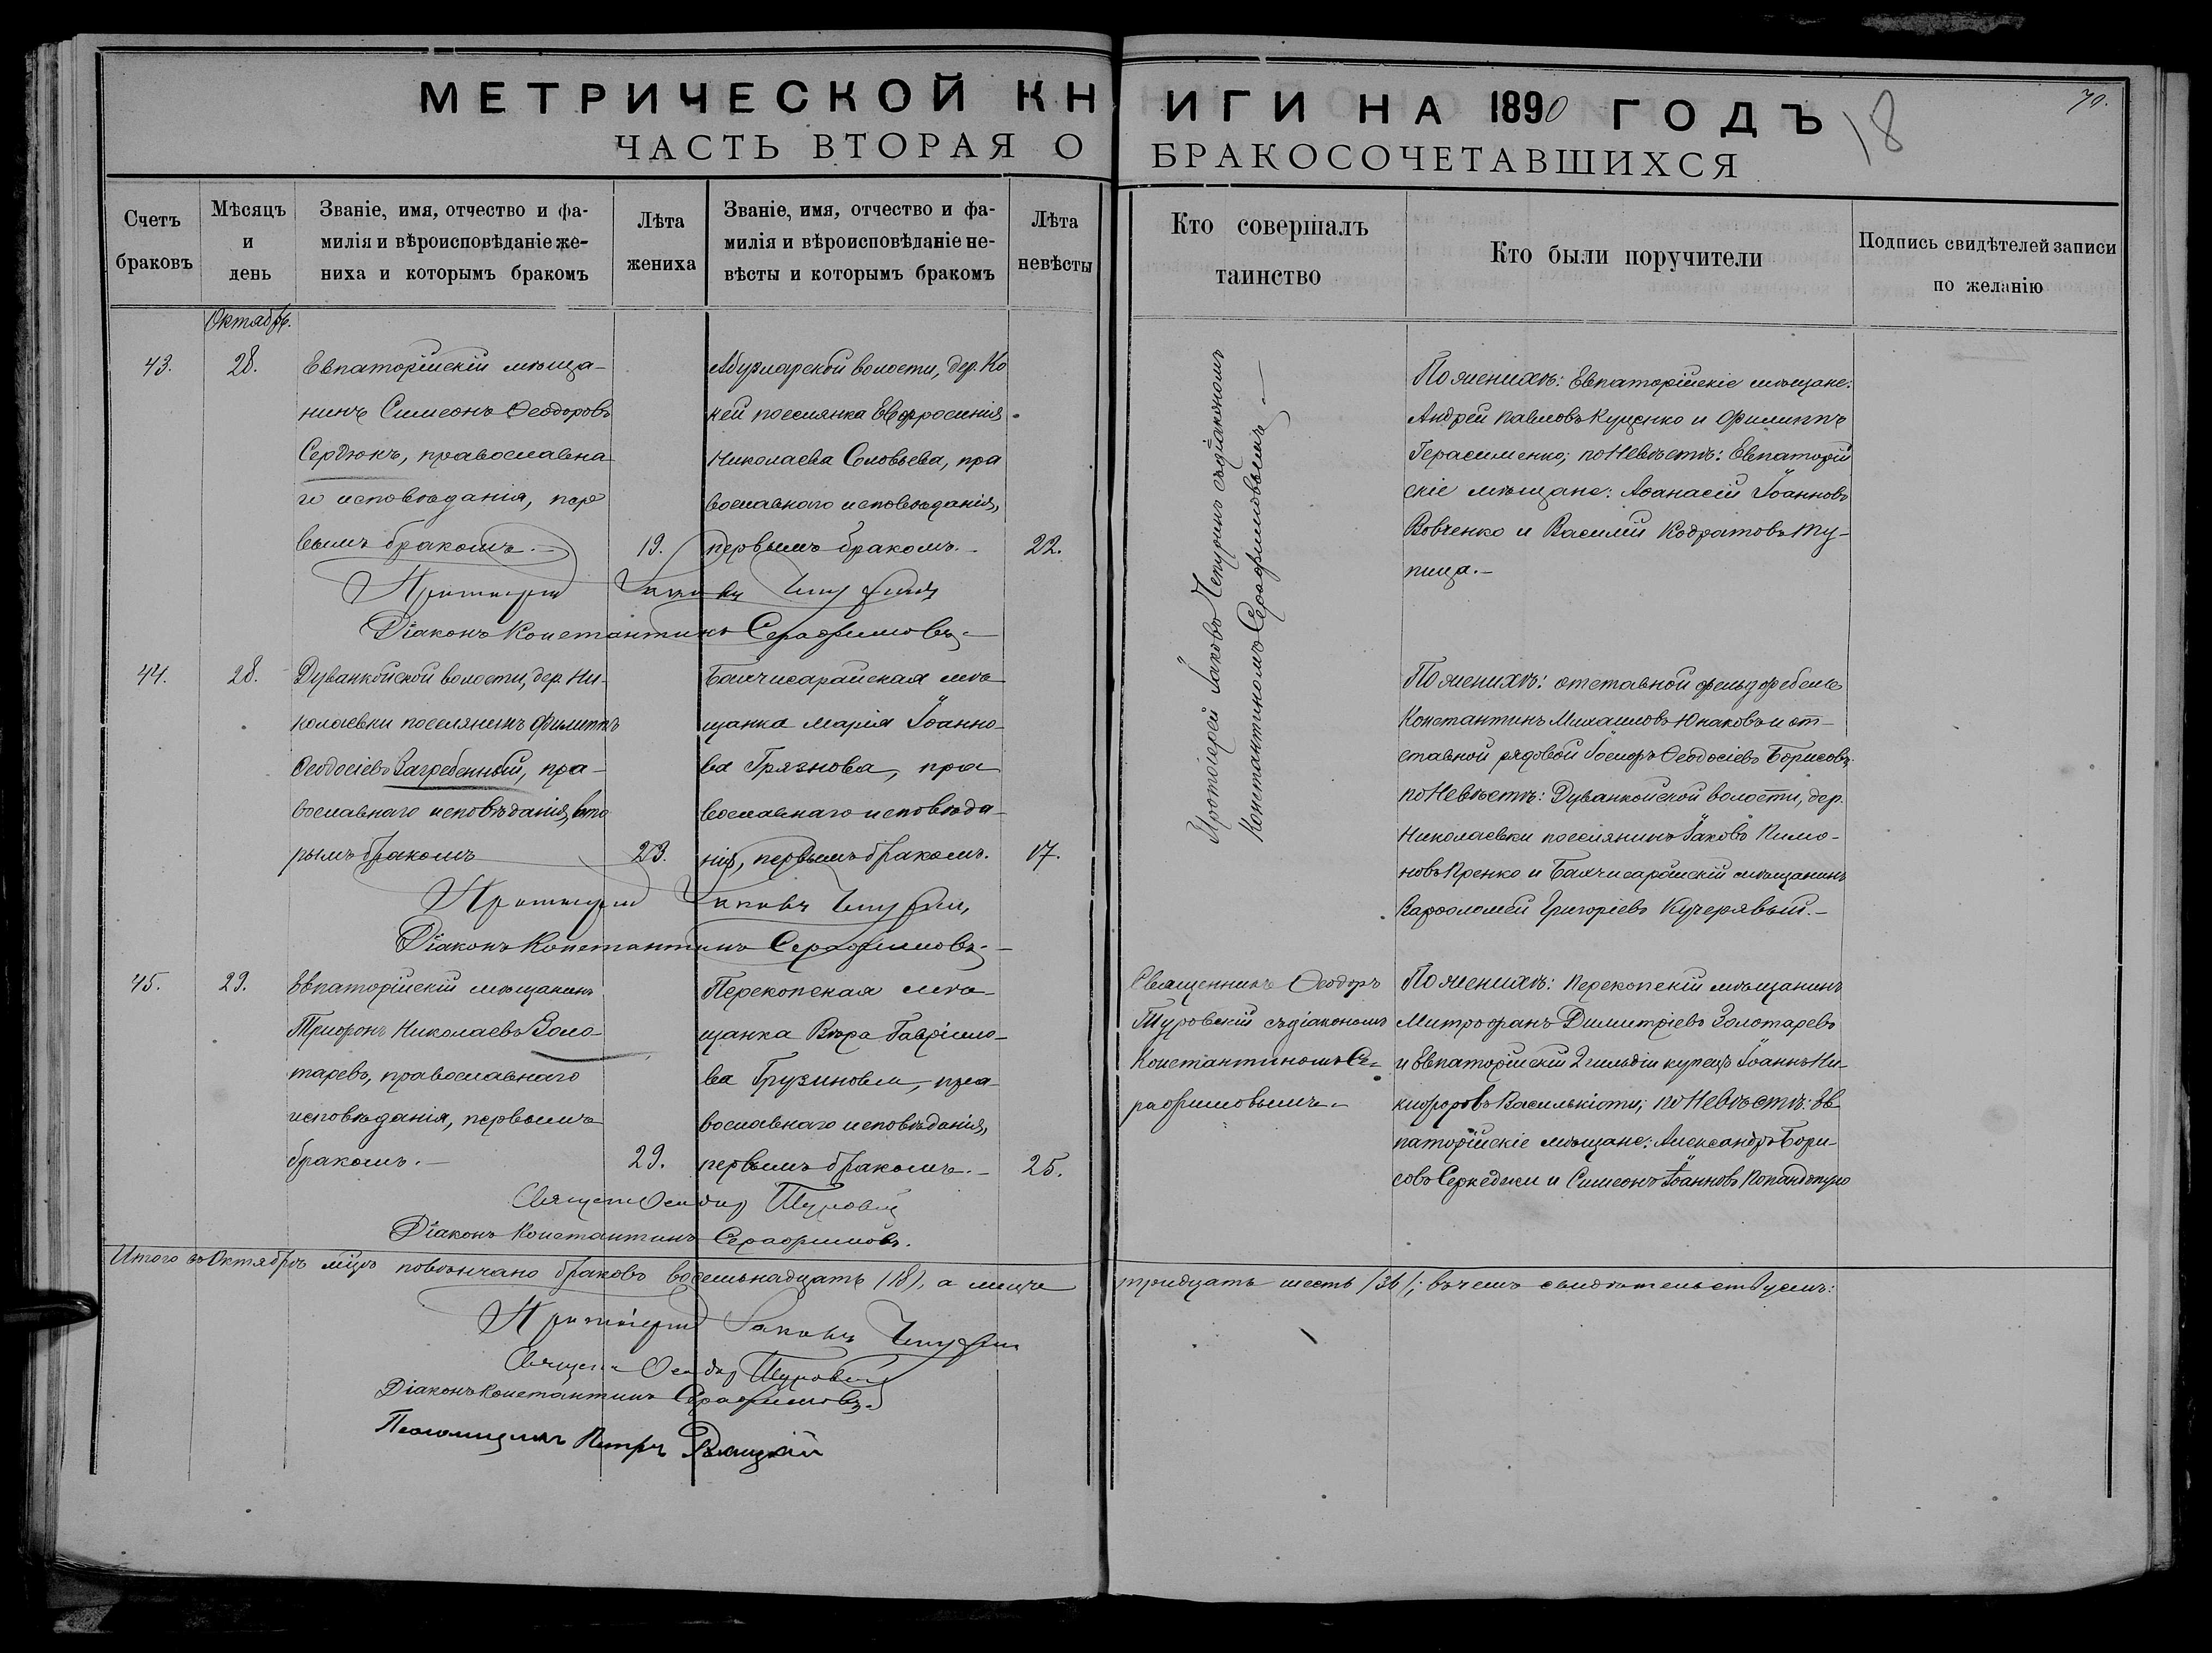 МЕТРИЧЕСКОЙ КНИГИ НА 1890 ГОДЪ
18
70.
ЧАСТЬ ВТОРАЯ О БРАКОСОЧЕТАВШИХСЯ
Счетъ
браковъ
Мѣсяцъ
и
день
Званіе, имя, отчество и фа-
милія и вѣроисповѣданіе же-
ниха и которымъ бракомъ
Лѣта
жениха
Званіе, имя, отчество и фа-
милія и вѣроисповѣданіе не-
вѣсты и которымъ бракомъ
Лѣта
невѣсты
Кто совершалъ
таинство
Кто были поручители
Подпись свидѣтелей записи
по желанію
Октябрь.
43.
28.
Евпаторійскій мѣща-
нинъ Симеонъ Ѳеодоровъ
Сердюкъ, православна
го исповѣданія, пер
вымъ бракомъ.-
19.
Абузларской волости, дер. Ко
ней поселянка Евфросинія
Николаева Соловьева, пра
вославнаго исповѣданія,
первымъ бракомъ.-
22.
Протоіерей Іаковъ Чепуринъ съ діакономъ
Константиномъ Серафимовымъ.-
По женихѣ: Евпаторійскіе мѣщане:
Андрей Павловъ Куценко и Филиппъ
Герасименко; по Невѣстѣ: Евпаторій
скіе мѣщане: Аѳанасій Іоанновъ
Вовченко и Василій Кодратовъ Ту-
пица.-
Протоіерей Іаковъ Чепуринъ
Діаконъ Константинъ Серафимовъ.-
44.
28.
Дуванкойской волости, дер. Ни-
колаевки поселянинъ Филиппъ
Ѳеодосіевъ Загребенный, пра-
вославнаго исповѣданія, вто
рымъ бракомъ
23.
Бахчисарайская мѣ
щанка Марія Іоанно-
ва Грязнова, пра
вославнаго исповѣда-
нія, первымъ бракомъ.
17.
По женихѣ: отставной фельдфебель
Константинъ Михаиловъ Юнаковъ и от-
ставной рядовой Іосифъ Ѳеодосіевъ Борисовъ.
по Невѣстѣ: Дуванкойской волости, дер.
Николаевки поселянинъ Іаковъ Пимо-
новъ Пренко и Бахчисарайскій мѣщанинъ
Варѳоломей Григоріевъ Кучерявый.-
Протоіерей Іаковъ Чепуринъ
Діаконъ Константинъ Серафимовъ.-
45.
29.
Евпаторійскій мѣщанинъ
Трифонъ Николаевъ Золо-
таревъ, православнаго
исповѣданія, первымъ
бракомъ.-
29.
Перекопская мѣ-
щанка Вѣра Гавріило-
ва Грузинова, пра-
вославнаго исповѣданія,
первымъ бракомъ.-
25.
Священникъ Ѳеодоръ
Туровскій съ діакономъ
Константиномъ Се-
рафимовымъ.-
По женихѣ: Перекопскій мѣщанинъ
Митрофанъ Димитріевъ Золотаревъ
и Евпаторійскій 2 гильдіи купецъ Іоаннъ Ни-
кифоровъ Василькіоти; по Невѣстѣ: Ев
паторійскіе мѣщане: Александръ Бори-
совъ Серкеджи и Симеонъ Іоанновъ Попандопуло
Священ. Ѳеодоръ Туровскій
Діаконъ Константинъ Серафимовъ.
Итого въ Октябрѣ мцѣ повѣнчано браковъ восемьнадцать (18), а лицъ тридцать шесть (36); въ чемъ свидѣтельствуемъ:
Протоіерей Іаковъ Чепуринъ
Священ. Ѳеодоръ Туровскій
Діаконъ Константинъ Серафимовъ.-
Псаломщикъ Петръ